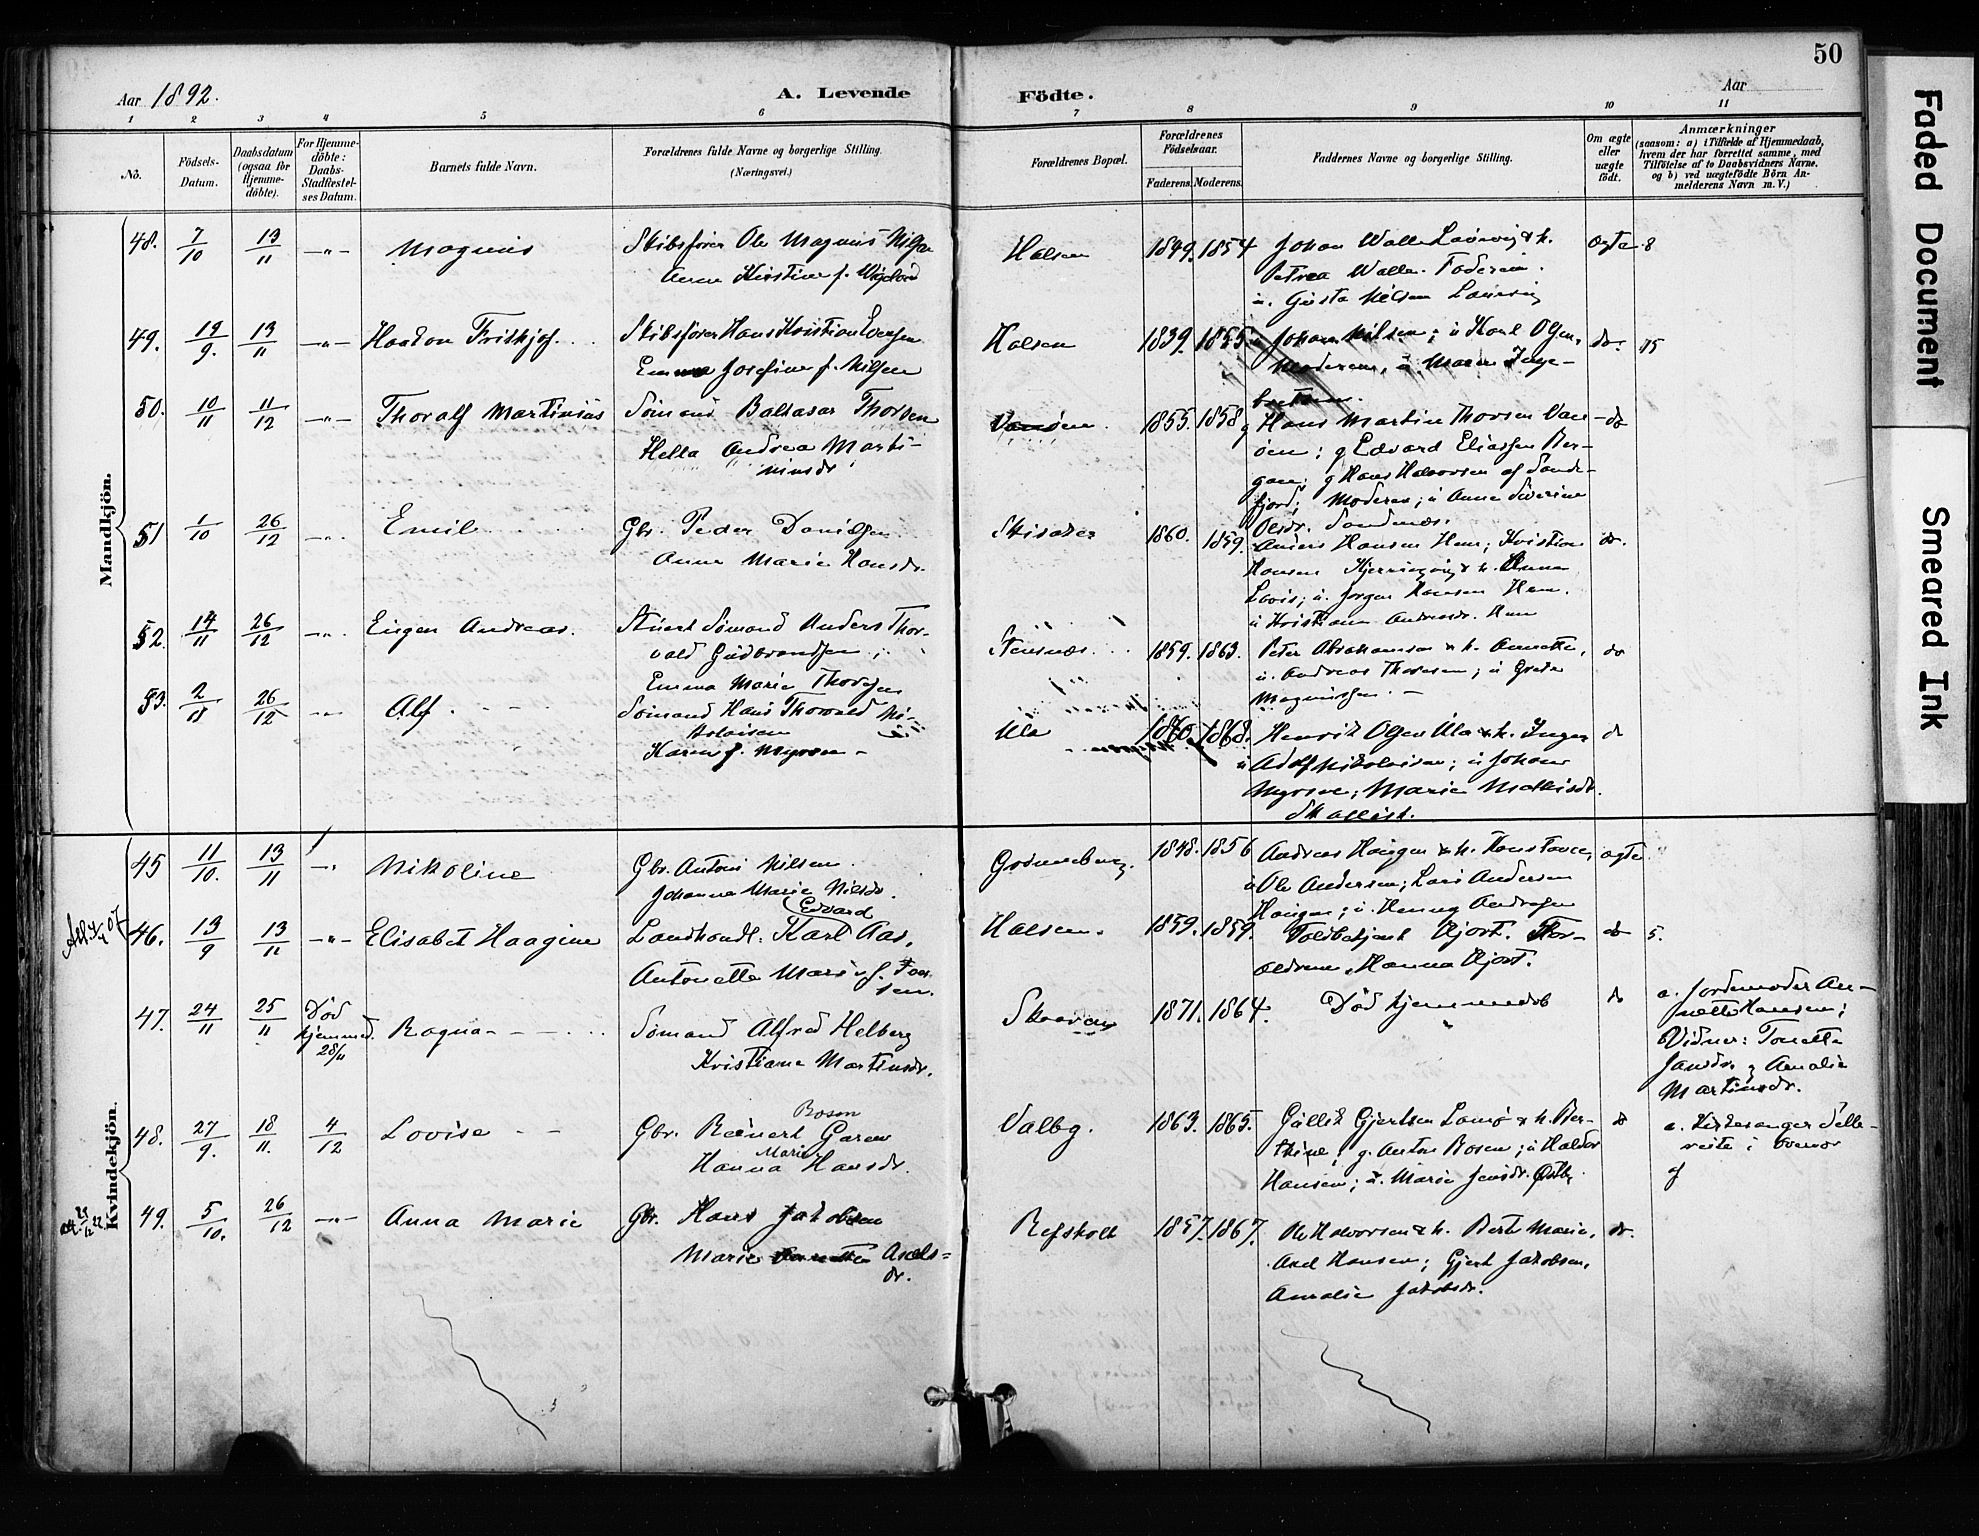 50
Aar 1892.
A. Levende
Födte.
Aar
1 2 3 4 5 6 7 8 9 10 11
No.
Födsels-
Datum.
Daabsdatum
(ogsaa for
Hjemme-
döbte).
For Hjemme-
döbte:
Daabs-
Stadfæstel-
ses Datum.
Barnets fulde Navn.
Forældrenes fulde Navne og borgerlige Stilling.
(Næringsvei.)
Forældrenes Bopæl.
Forældrenes
Födselsaar.
Faderens. Moderens.
Faddernes Navne og borgerlige Stilling.
Om ægte
eller
uægte
födt.
Anmærkninger
(saasom: a) i Tilfælde af Hjemmedaab,
hvem der har forrettet samme, med
Tilföielse af to Daabsvidners Navne.
og b) ved uægtefödte Börn An-
melderens Navn m. V.)
Mandkjön.
48. 7/10 13/11 -"- Magnus
Skibsfører Ole Magnus Nilsen
Anne Kirstine f.
Halsen 1849. 1854
Johan Walle Laurvig & h.
Petrea Walle. Faderen.
u. Gusta Nilsen Laurvig
ægte 8
49. 19/9. 13/11 -"- Haakon Frithjof.
Skibsfører Hans Kristian Evensen
Emma Josefine f. Nilsen
Halsen 1839. 1855
Johan Nilsen; u Karl Olsen,
Moderen, u. Maren Inge-
bretsen.
do. 15
50. 10/11 11/12 -"- Thoralf Martinius
Sømand Baltasar Thorsen
Hella Andrea Marti-
niusdr
1855. 1858
g Hans Martin Thorsen Van-
øen; g Edvard Eliassen Ber-
gan; g Hans Halvorsen af Sande-
fjord; Moderen; u Anne Severine
Olsdr. Sandnæs.
do
51 1/10 26/12 -"- Emil
Gbr. Peder Danielsen
Anne Marie Hansdr.
Skisaker 1860. 1859.
Anders Hansen Hem; Kristian
Hansen Kjerringvig & h. Anna
Lovis; u. Jørgen Hansen Hem.
u Kristiane Andersdr. Hem
do.
52. 14/11 26/12 -"- Eugen Andreas.
Stuert Sømand Anders Thor-
vald Gudbrandsen;
Emma Marie Thorsen
Stensnæs 1859. 1863.
Peter Abrahamsen & h. Annette,
u. Andreas Thoresen; u Grete
Magnussen.
do
53. 2/11 26/12 -"- Alf
Sømand Hans Thorvald Ni-
kolaisen
Karen f. Myren
Ula 1860. 1868.
Henrik Olsen Ula & h. Inger
u Adolf Nikolaisen; u Johan
Myren; Marie Mathisdr.
do
Kvindekjön.
45 11/10. 13/11 -"- Nikoline
Gbr. Anton Nilsen
Johanne Marie Nilsdr.
Grønneberg. 1848. 1856
Andreas Haugen & h. Konstance,
u Ole Andersen; Lars Andersen
Haugen; u. Henny Andresen
ægte
46. 13/9 13/11 -"- Elisabet Haagine
Edvard
Landhandl. Karl Aas,
Antonette Marie f. Lar-
sen.
Halsen. 1859. 1859.
Toldbetjent Hjort. For-
ældrene, Hanna Hjort.
do 5.
47. 24/11 25/11 Død
hjemmed.
28/11
Ragna
Sømand Alfred Helberg
Kristiane Martinsdr.
1871. 1864.
Død hjemmedøb
do a. Jordemoder An-
nette Hansen;
Vidner: Tonette
Jansdr. g Amalie
Martinsdr.
48. 27/9. 18/11. 4/12 Lovise
Gbr. Reinert Garen
Marie
Hanna Hansdr.
Valby. 1863. 1865.
Gullik Gjertsen Lamø & h. Ber-
thine; g. Anton Bosen; u Haldor
Hansen; u. Marie Jensdr. Østby
do a. Kirkesanger
49. 5/10. 26/12 -"- Anna Marie
Gbr. Hans Jakobsen
Marie Axels-
dr.
Refsholt 1857. 1867.
Ole Halvorsen & h. Berte Marie,
Axel Hansen; Gjert Jakobsen,
Amalie Jakobsdr.
do.
Faded Document
Smeared Ink